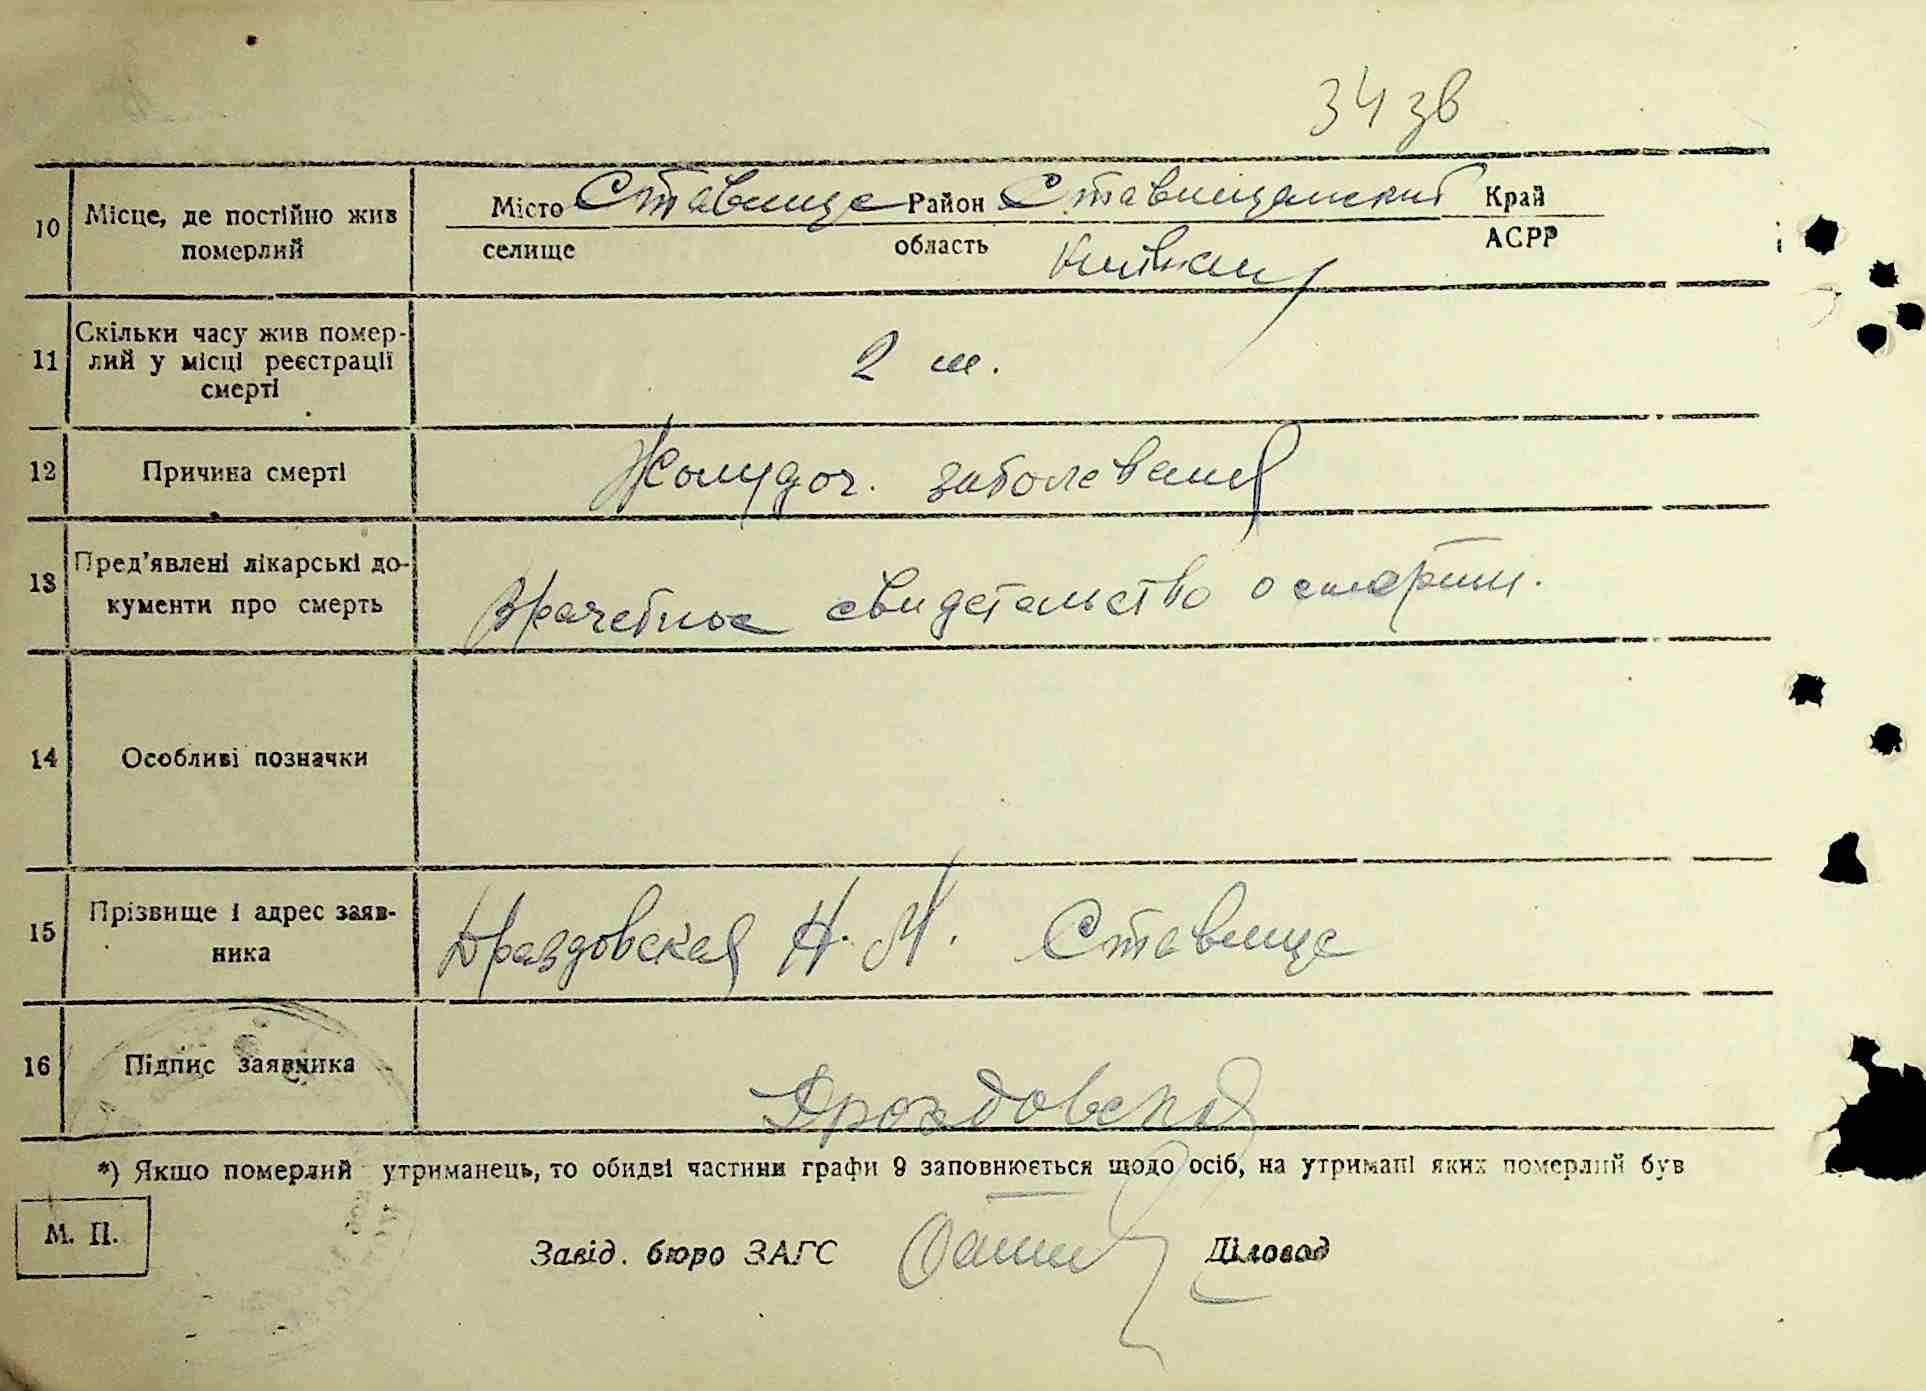 34 зв
10 Місце, де постійно жив Місто Ставище Район Ставищанский Край
померлий селище область Київский АСРР
11 Скільки часу жив помер-
лий у місці реєстрації 2 м.
смерті
12 Причина смерті Жолудоч. заболевания
13 Пред'явлені лікарські до-
кументи про смерть Врачебное свидетельство о смерти.
14 Особливі позначки
15 Прізвище і адрес заяв- Драздовская Н. М. Ставище
ника
16 Підпис заявника Дроздовская
*) Якщо померлий утриманець, то обидві частини графи 9 заповнюється щодо осіб, на утримані яких померлий був
М. П.
Завід. бюро ЗАГС Діловод